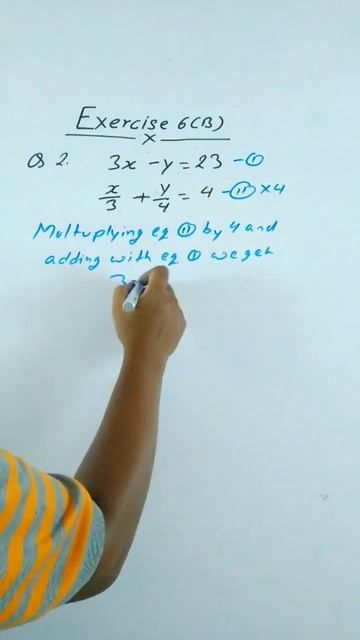 Exercise 6(B)
Q 2. 3x - y = 23 - (i)
x/3 + y/4 = 4 - (ii) × 4
Multuplying eq (ii) by 4 and
adding with eq (i) we get
3